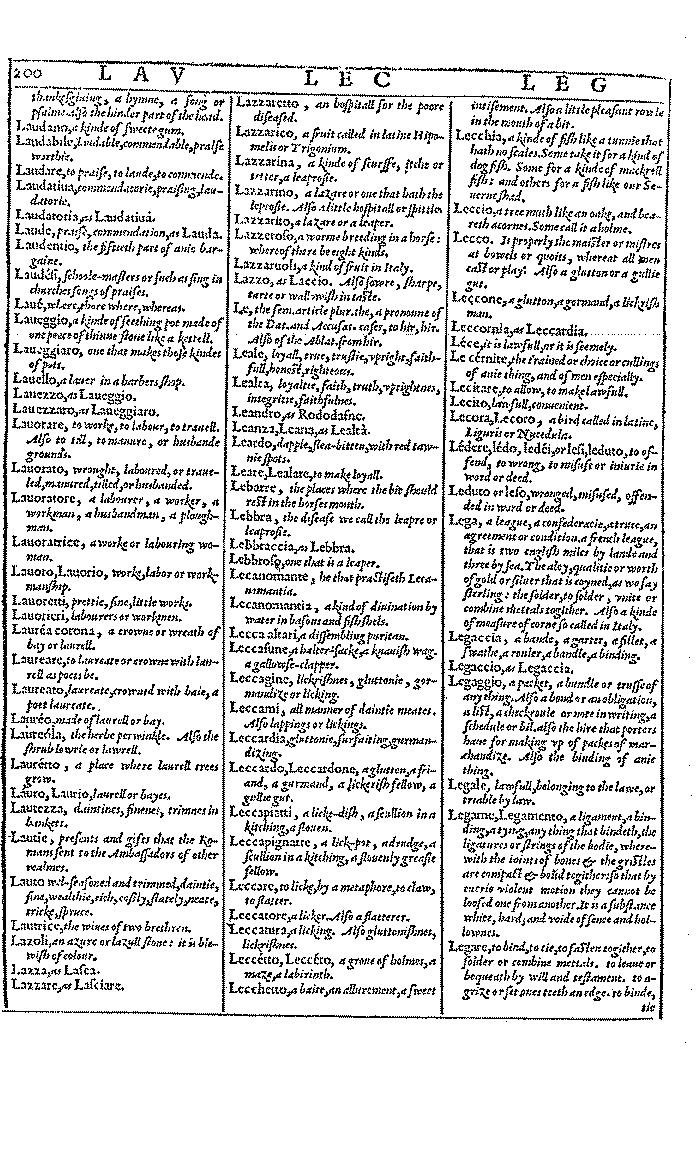 200 L A V L E C L E G
thankesgiuing, a hymne, a song or
psalme. Also the hinder part of the hand.
Laudano, a kinde of sweete gum.
Laudabile, laudable, commendable, praise
worthie.
Laudare, to praise, to laude, to commende.
Laudatiua, commendatorie, praising, lau-
datorie.
Laudatoria, as Laudatiua.
Laude, praise, commendation, as Lauda.
Laudentio, the fifteeth part of anie bar-
gaine.
Laudési, schoole-masters or such as sing in
churches songs of praises.
Laué, where, there where, whereas.
Laueggio, a kinde of seething pot made of
one peece of thinne stone like a kettell.
Laueggiaro, one that makes those kindes
of pots.
Lauello, a lauer in a barbers shop.
Lauezzo, as Laueggio.
Lauezzaro, as Laueggiaro.
Lauorare, to worke, to labour, to trauell.
Also to til, to manure, or husbande
grounds.
Lauorato, wrought, laboured, or traue-
led, manured, tilled, or husbanded.
Lauoratore, a labourer, a worker, a
workman, a husbandman, a plough-
man.
Lauoratrice, a worke or labouring wo-
man.
Lauoro, Lauorio, worke, labor or worke
manship.
Lauoretti, prettie, fine, little workes.
Lauorieri, labourers or workmen.
Lauréa corona, a crowne or wreath of
bay or laurell.
Laureare, to laureate or crowne with lau-
rell as poets be.
Laureato, laureate, crownd with baie, a
poet laureate.
Lauréo, made of laurell or bay.
Laureola, the herbe perwinkle. Also the
shrub lowrie or lawrell.
Laurétto, a place where laurell trees
grow.
Lauro, Laurio, laurell or bayes.
Lautezza, daintines, finenes, trimnes in
bankets.
Lautie, presents and gifts that the Ro-
mans sent to the Ambassadors of other
realmes.
Lauto well-seasoned and trimmed, daintie,
fine, wealthie, rich, costly, stately, neate,
tricke, spruce.
Lautrice, the wiues of two brethren.
Lazoli, an azure or lazull stone: it is ble-
wish of colour.
Lazza, as Lasca.
Lazzare, as Lasciare.
Lazzaretto, an hospitall for the poore
diseased.
Lazzarico, a fruit called in latine Hipo-
melis or Trigonium.
Lazzarina, a kinde of scurffe, itche or
tetter, a leaprosie.
Lazzarino, a lazare or one that hath the
leprosie. Also a little hospitall or spittle.
Lazzarito, a lazare or a leaper.
Lazzeroso, a worme breeding in a horse:
whereof there be eight kinds.
Lazzaruoli, a kind of fruit in Italy.
Lazzo, as Laccio. Also sowre, sharpe,
tarte or wallowish in taste.
Le, the fem. article plur. the, a pronoune of
the Dat. and Accusat. cases, to hir, hir.
Also of the Ablat. from hir.
Leale, loyall, true, trustie, vpright, faith-
full, honest, righteous.
Lealta, loyaltie, faith, truth, vprightnes,
integritie, faithfulnes.
Leandro, as Rododafne.
Leanza, Leana, as Lealtà.
Leardo, dapple, flea-bitten, with red taw-
nie spots.
Leare, Lealare, to make loyall.
Lebarre, the places where the bit should
rest in the horses mouth.
Lebbra, the disease we call the leapre or
leaprosie.
Lebbraccia, as Lebbra.
Lebbroso, one that is a leaper.
Lecanomante, he that practiseth Leca-
nomantia.
Lecanomantia, a kind of diuination by
water in basons and fishshels.
Lecca altari, a dissembling puritan.
Leccafune, a halter-sacke, a knauish wag,
a gallowse-clapper.
Leccagine, lickrishnes, gluttonie, gor-
mandize or licking.
Leccami, all manner of daintie meates.
Also lappings or lickings.
Leccardia, gluttonie, surfaiting, gurman-
dizing.
Leccardo, Leccardone, a glutton, a fri-
and, a gurmand, a lickerish fellow, a
gullie gut.
Leccapiatti, a licke-dish, a scullion in a
kitching, a slouen.
Leccapignatte, a lick-pot, a drudge, a
scullion in a kitching, a slouenly greasie
fellow.
Leccare, to licke, by a metaphore, to claw,
to flatter.
Leccatore, a licker. Also a flatterer.
Leccatura, a licking. Also gluttonishnes,
lickrishnes.
Leccéto, Leccéro, a groue of holmes, a
maze, a labirinth.
Lecchetto, a baite, an allurement, a sweet
intisement. Also a little pleasant rowle
in the mouth of a bit.
Lecchia, a kinde of fish like a tunnie that
hath no scales. Some take it for a kind of
dog fish. Some for a kinde of mackrell
fish: and others for a fish like our Se-
uerne shad.
Leccio, a tree much like an oake, and bea-
reth acornes. Some call it a holme.
Lecco. It properly the maister or mistres
at bowels or quoits, whereat all men
cast or play: Also a glutton or a gullie
gut.
Leccone, a glutton, a gormand, a lickrish
man.
Lecconia, as Leccardia.
Léce, it is lawfull, or it is seemely.
Le cérnite, the trained or choice or cullings
of anie thing, and of men especially.
Lecitare, to allow, to make lawfull.
Lecito, lawfull, conuenient.
Lecora, Lecoro, a bird called in latine,
Liguris or Nycedula.
Lédere, lédo, ledéi, or lesi, leduto, to of-
fend, to wrong, to misuse or iniurie in
word or deed.
Leduto or leso, wronged, misused, offen-
ded in word or deed.
Lega, a league, a confederacie, a truce, an
agreement or condition, a french league,
that is two english miles by lande and
three by sea. The aloy, qualitie or worth
of gold or siluer that is coyned, as we say
sterling: the soder, to solder, vnite or
combine mettals together. Also a kinde
of measure of corne so called in Italy.
Legaccia, a bande, a garter, a fillet, a
swathe, a router, a bandle, a binding.
Legaccio, as Legaccia.
Legaggio, a packet, a bundle or trusse of
any thing. Also a bond or an obligation,
a list, a checkroule or note in writing, a
schedule or bil. also the hire that porters
haue for making vp of packes of mar-
chandize. Also the binding of anie
thing.
Legale, lawfull, belonging to the lawe, or
triable by law.
Legame, Legamento, a ligament, a bin-
ding, a tying, any thing that bindeth, the
ligatures or strings of the bodie, where-
with the ioints of bones & the gristles
are compact & bound togither: so that by
euerie violent motion they cannot be
loosed one from another. It is a substance
white, hard, and voide of sence and hol-
lownes.
Legare, to bind, to tie, to fasten together, to
solder or combine mettals. to leaue or
bequeath by will and testament. to a-
grize or set ones teeth an edge. to binde,
tie